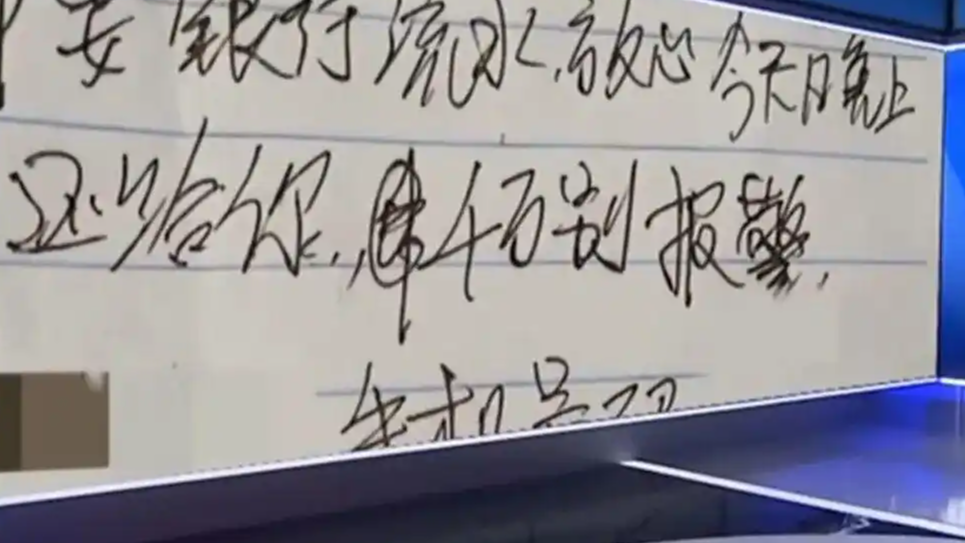 安银行流水,放心今天晚上
还给你,千万别报警,
手机号码